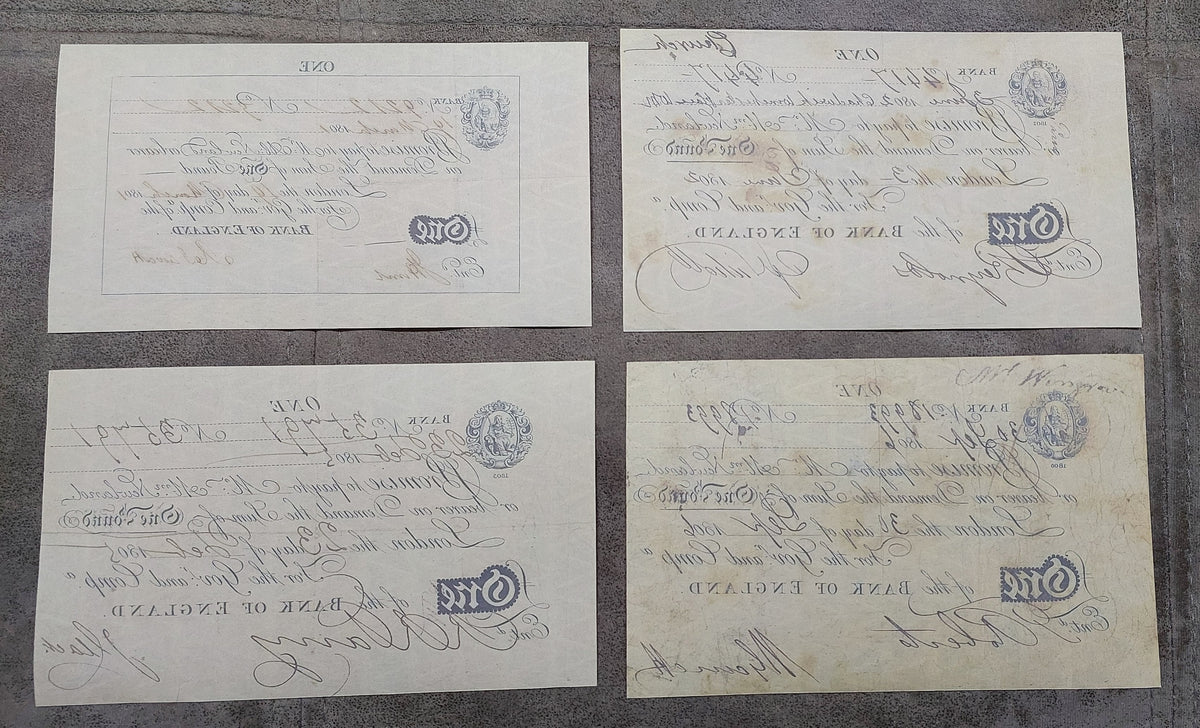 ONE
BANK Nº 9212 Nº 9212
March 1801
I Promise to pay to Mr. Abm. Newland or bearer
on Demand the Sum of One Pound
London the day of March 1801
For the Govr. and Compa. of the
BANK OF ENGLAND.
One
Entd.
ONE
BANK Nº 4417 Nº 4417
3 June 1802
1802
I Promise to pay to Mr. Abm. Newland
or bearer on Demand the Sum of One Pound
London the 3 day of June 1802
For the Govr. and Compa.
of the BANK OF ENGLAND.
One
Entd. Reynolds
ONE
BANK Nº 35791 Nº 35791
23 Feb 1805
I Promise to pay to Mr. Abm. Newland
or bearer on Demand the Sum of One Pound
London the 23 day of Feb 1805
For the Govr. and Compa.
of the BANK OF ENGLAND.
One
Entd.
ONE
BANK Nº 18993 Nº 18993
30 Sep 1806
I Promise to pay to Mr. Abm. Newland
or bearer on Demand the Sum of One Pound
London the 30 day of Sep 1806
For the Govr. and Compa.
of the BANK OF ENGLAND.
One
Entd. Roberts